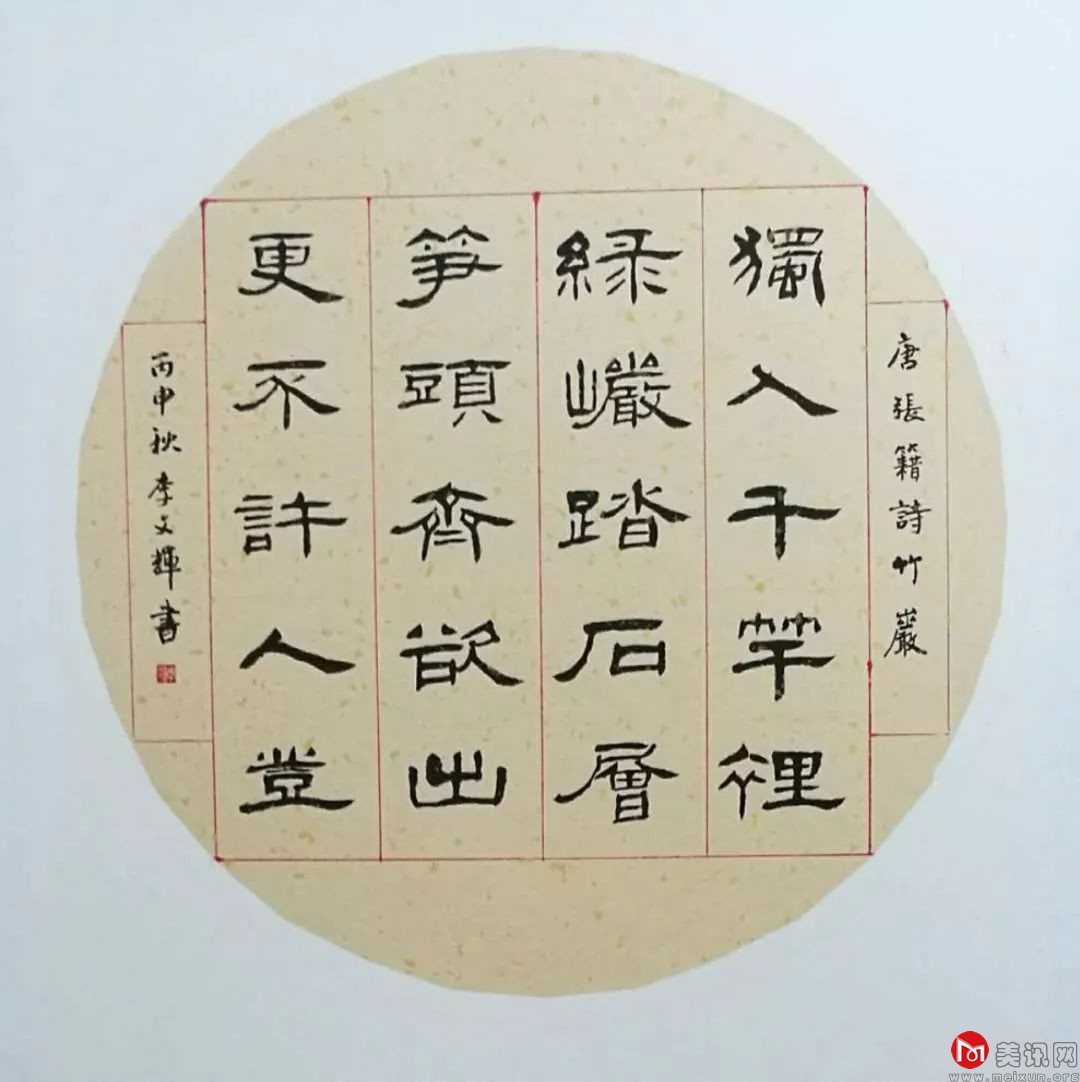 唐張籍詩竹巖
獨入千竿裡
緑巗踏石層
笋頭齊欲出
更不許人登
丙申秋李文輝書
美讯网
www.meixun.org